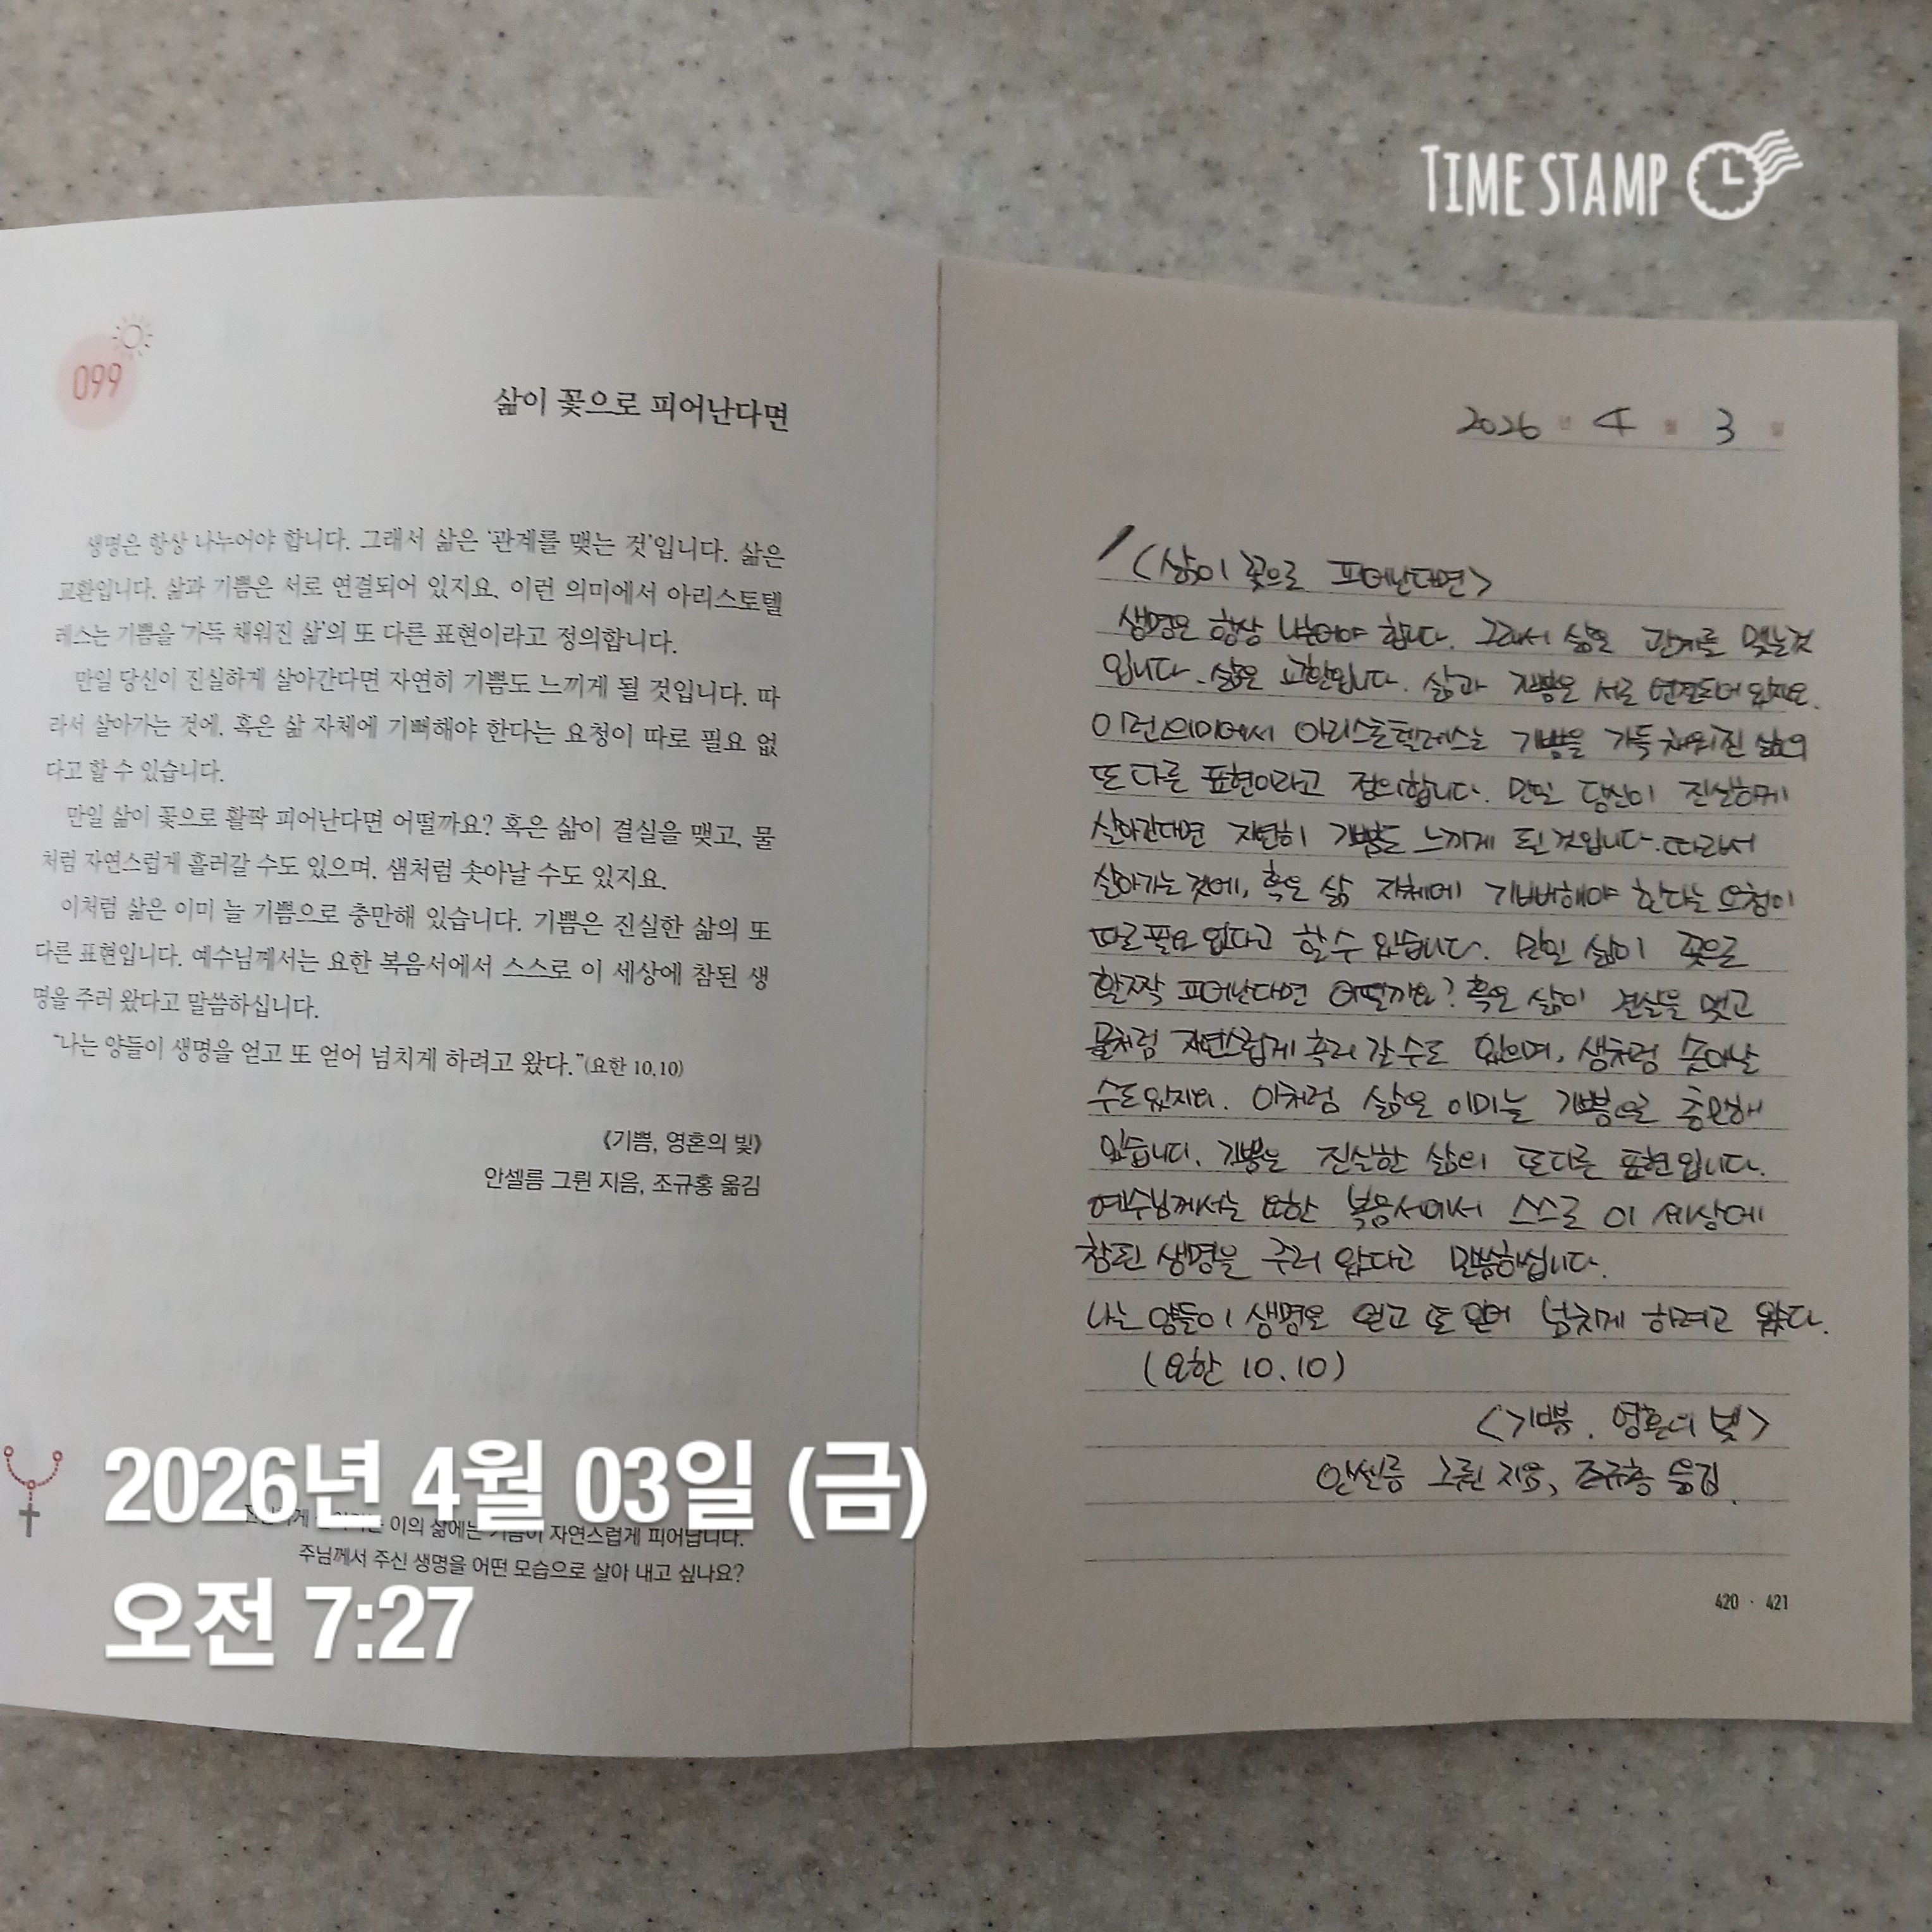 TIME STAMP
099
삶이 꽃으로 피어난다면
생명은 항상 나누어야 합니다. 그래서 삶은 '관계를 맺는 것'입니다. 삶은
교환입니다. 삶과 기쁨은 서로 연결되어 있지요. 이런 의미에서 아리스토텔
레스는 기쁨을 '가득 채워진 삶'의 또 다른 표현이라고 정의합니다.
만일 당신이 진실하게 살아간다면 자연히 기쁨도 느끼게 될 것입니다. 따
라서 살아가는 것에, 혹은 삶 자체에 기뻐해야 한다는 요청이 따로 필요 없
다고 할 수 있습니다.
만일 삶이 꽃으로 활짝 피어난다면 어떨까요? 혹은 삶이 결실을 맺고, 물
처럼 자연스럽게 흘러갈 수도 있으며, 샘처럼 솟아날 수도 있지요.
이처럼 삶은 이미 늘 기쁨으로 충만해 있습니다. 기쁨은 진실한 삶의 또
다른 표현입니다. 예수님께서는 요한 복음서에서 스스로 이 세상에 참된 생
명을 주러 왔다고 말씀하십니다.
"나는 양들이 생명을 얻고 또 얻어 넘치게 하려고 왔다."(요한 10,10)
《기쁨, 영혼의 빛》
안셀름 그륀 지음, 조규홍 옮김
이의 삶에는 기쁨이 자연스럽게 피어납니다.
주님께서 주신 생명을 어떤 모습으로 살아 내고 싶나요?
2026년 4월 03일 (금)
오전 7:27
2026 년 4 월 3 일
<삶이 꽃으로 피어난다면>
생명은 항상 나누어야 합니다. 그래서 삶은 관계를 맺는것
입니다. 삶은 교환입니다. 삶과 기쁨은 서로 연결되어 있지요.
이런 의미에서 아리스토텔레스는 기쁨을 가득 채워진 삶의
또 다른 표현이라고 정의합니다. 만일 당신이 진실하게
살아간다면 자연히 기쁨도 느끼게 될 것입니다. 따라서
살아가는 것에, 혹은 삶 자체에 기뻐해야 한다는 요청이
따로 필요 없다고 할 수 있습니다. 만일 삶이 꽃으로
활짝 피어난다면 어떨까요? 혹은 삶이 결실을 맺고
물처럼 자연스럽게 흘러 갈 수도 있으며, 샘처럼 솟아날
수도 있지요. 이처럼 삶은 이미 늘 기쁨으로 충만해
있습니다. 기쁨은 진실한 삶의 또다른 표현입니다.
예수님께서는 요한 복음서에서 스스로 이 세상에
참된 생명을 주러 왔다고 말씀하십니다.
나는 양들이 생명을 얻고 또 얻어 넘치게 하려고 왔다.
(요한 10.10)
<기쁨. 영혼의 빛>
안셀름 그륀 지음, 조규홍 옮김.
420 · 421